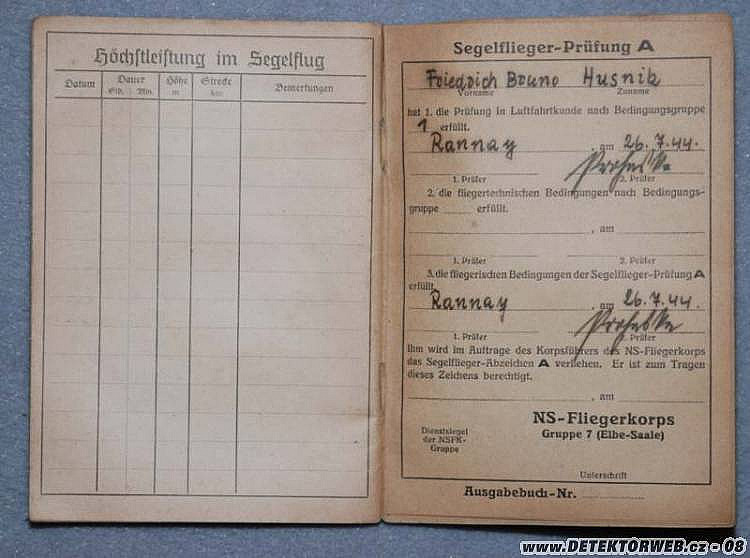 Höchstleistung im Segelflug
Datum Dauer Höhe Strecke Bemerkungen
Std. Min. m km
Segelflieger-Prüfung A
Friedrich Bruno Husnik
Vorname Zuname
hat 1. die Prüfung in Luftfahrtkunde nach Bedingungsgruppe
1 erfüllt.
Rannay, am 26.7.44.
1. Prüfer 2. Prüfer
2. die fliegertechnischen Bedingungen nach Bedingungs-
gruppe erfüllt.
, am
1. Prüfer 2. Prüfer
3. die fliegerischen Bedingungen der Segelflieger-Prüfung A
erfüllt.
Rannay, am 26.7.44.
1. Prüfer 2. Prüfer
Ihm wird im Auftrage des Korpsführers des NS-Fliegerkorps
das Segelflieger-Abzeichen A verliehen. Er ist zum Tragen
dieses Zeichens berechtigt.
, am
NS-Fliegerkorps
Gruppe 7 (Elbe-Saale)
Dienstsiegel
der NSFK-
Gruppe
Unterschrift
Ausgabebuch-Nr.
www.DETEKTORWEB.cz - 08